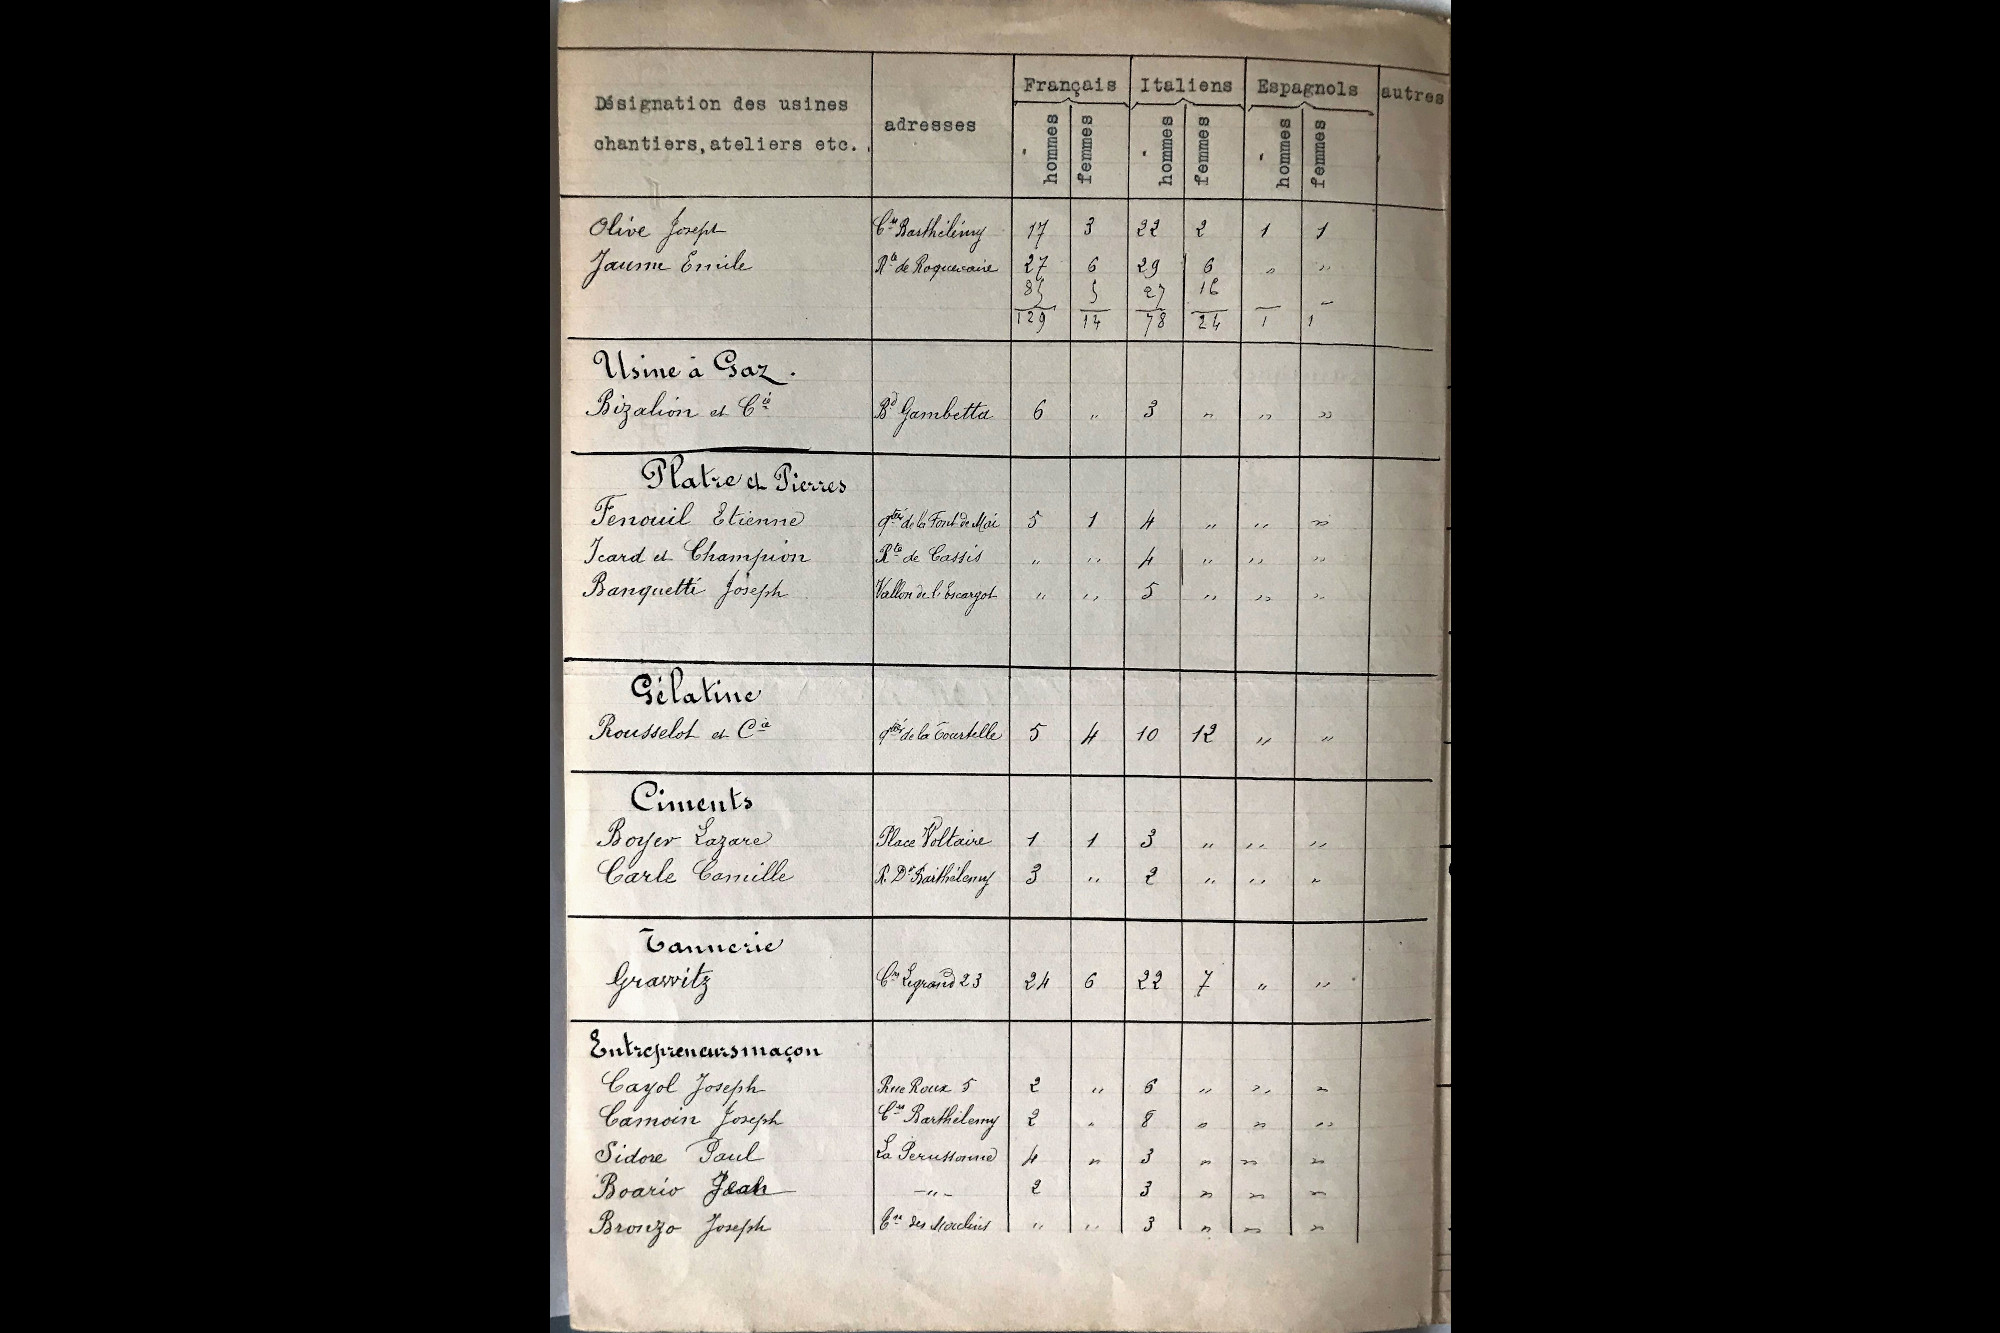 Désignation des usines
chantiers, ateliers etc.
adresses
Français Italiens Espagnols autres
hommes femmes hommes femmes hommes femmes
Olive Joseph Crs Barthélémy 17 3 22 2 1 1
Jaume Emile Rte de Roquevaire 27 6 29 6 " "
85 5 27 16
129 14 78 24 1 1
Usine à Gaz.
Bizalion et Cie Bd Gambetta 6 " 3 " " "
Platre et Pierres
Fenouil Etienne qtier de la Font de Mai 5 1 4 " " "
Icard et Champion Rte de Cassis " " 4 " " "
Banquetti Joseph Vallon de l'Escargot " " 5 " " "
Gélatine
Rousselot et Cie qtier de la Tourtelle 5 4 10 12 " "
Ciments
Boyer Lazare Place Voltaire 1 1 3 " " "
Carle Camille R. Dr Barthélemy 3 " 2 " " "
Tannerie
Grawitz Crs Legrand 23 24 6 22 7 " "
Entrepreneurs maçon
Cayol Joseph Rue Roux 5 2 " 6 " " "
Camoin Joseph Crs Barthélemy 2 " 8 " " "
Sidore Paul La Perussonne 4 " 3 " " "
Boario Jean -"- 2 3 " " "
Bronzo Joseph des Moulins " " 3 " " "